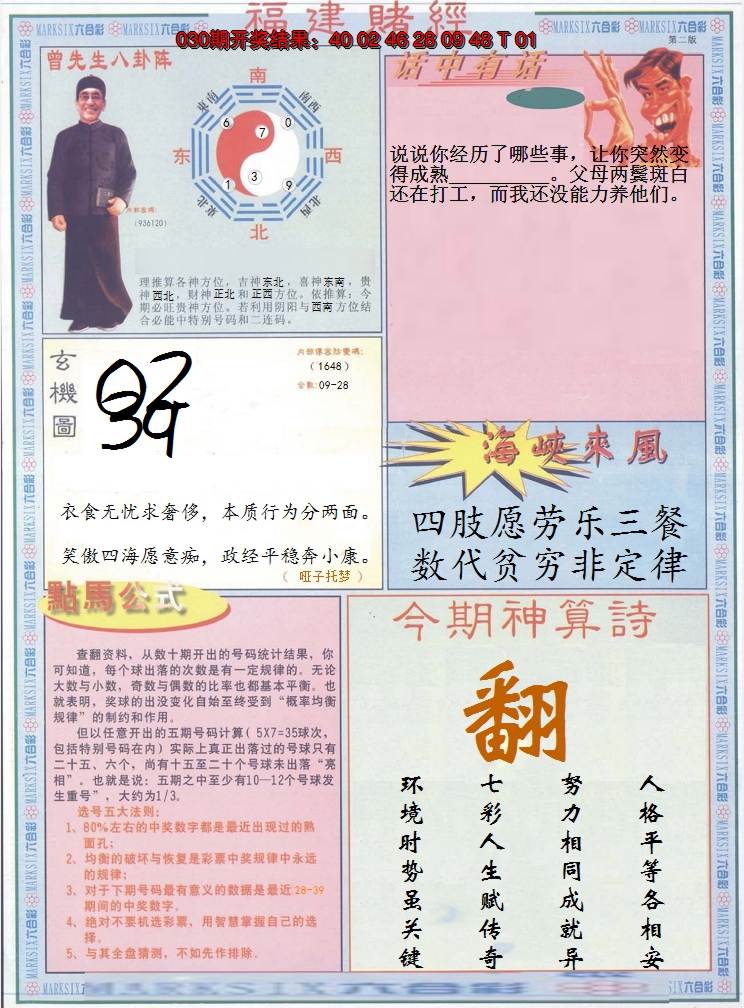 福建賭經
030期开奖结果：40 02 46 28 09 48 T 01
MARKSIX六合彩
第二版
曾先生八卦阵
南
东南
西南
6
7
0
东
西
1
3
9
東北
西北
北
(936120)
理推算各神方位，吉神东北，喜神东南，贵
神西北，财神正北和正西方位。依推算：今
期必旺贵神方位。若利用阴阳与西南方位结
合必能中特别号码和二连码。
话中有话
说说你经历了哪些事，让你突然变
得成熟__________。父母两鬓斑白
还在打工，而我还没能力养他们。
玄機圖
内部傳密防密碼：
（1648）
合数:09-28
衣食无忧求奢侈，本质行为分两面。
笑傲四海愿意痴，政经平稳奔小康。
（ 哑子托梦 ）
海峽來風
四肢愿劳乐三餐
数代贫穷非定律
點馬公式
查翻资料，从数十期开出的号码统计结果，你
可知道，每个球出落的次数是有一定规律的。无论
大数与小数，奇数与偶数的比率也都基本平衡。也
就表明，奖球的出没变化自始至终受到“概率均衡
规律”的制约和作用。
但以任意开出的五期号码计算( 5X7=35球次，
包括特别号码在内) 实际上真正出落过的号球只有
二十五、六个，尚有十五至二十个号球未出落“亮
相”。也就是说：五期之中至少有10—12个号球发
生重号”，大约为1/3。
选号五大法则：
1、80%左右的中奖数字都是最近出现过的熟
面孔；
2、均衡的破坏与恢复是彩票中奖规律中永远
的规律；
3、对于下期号码最有意义的数据是最近28-39
期间的中奖数字。
4、绝对不要机选彩票，用智慧掌握自己的选
择。
5、与其全盘猜测，不如先作排除。
今期神算詩
翻
人格平等各相安
努力相同成就异
七彩人生赋传奇
环境时势虽关键